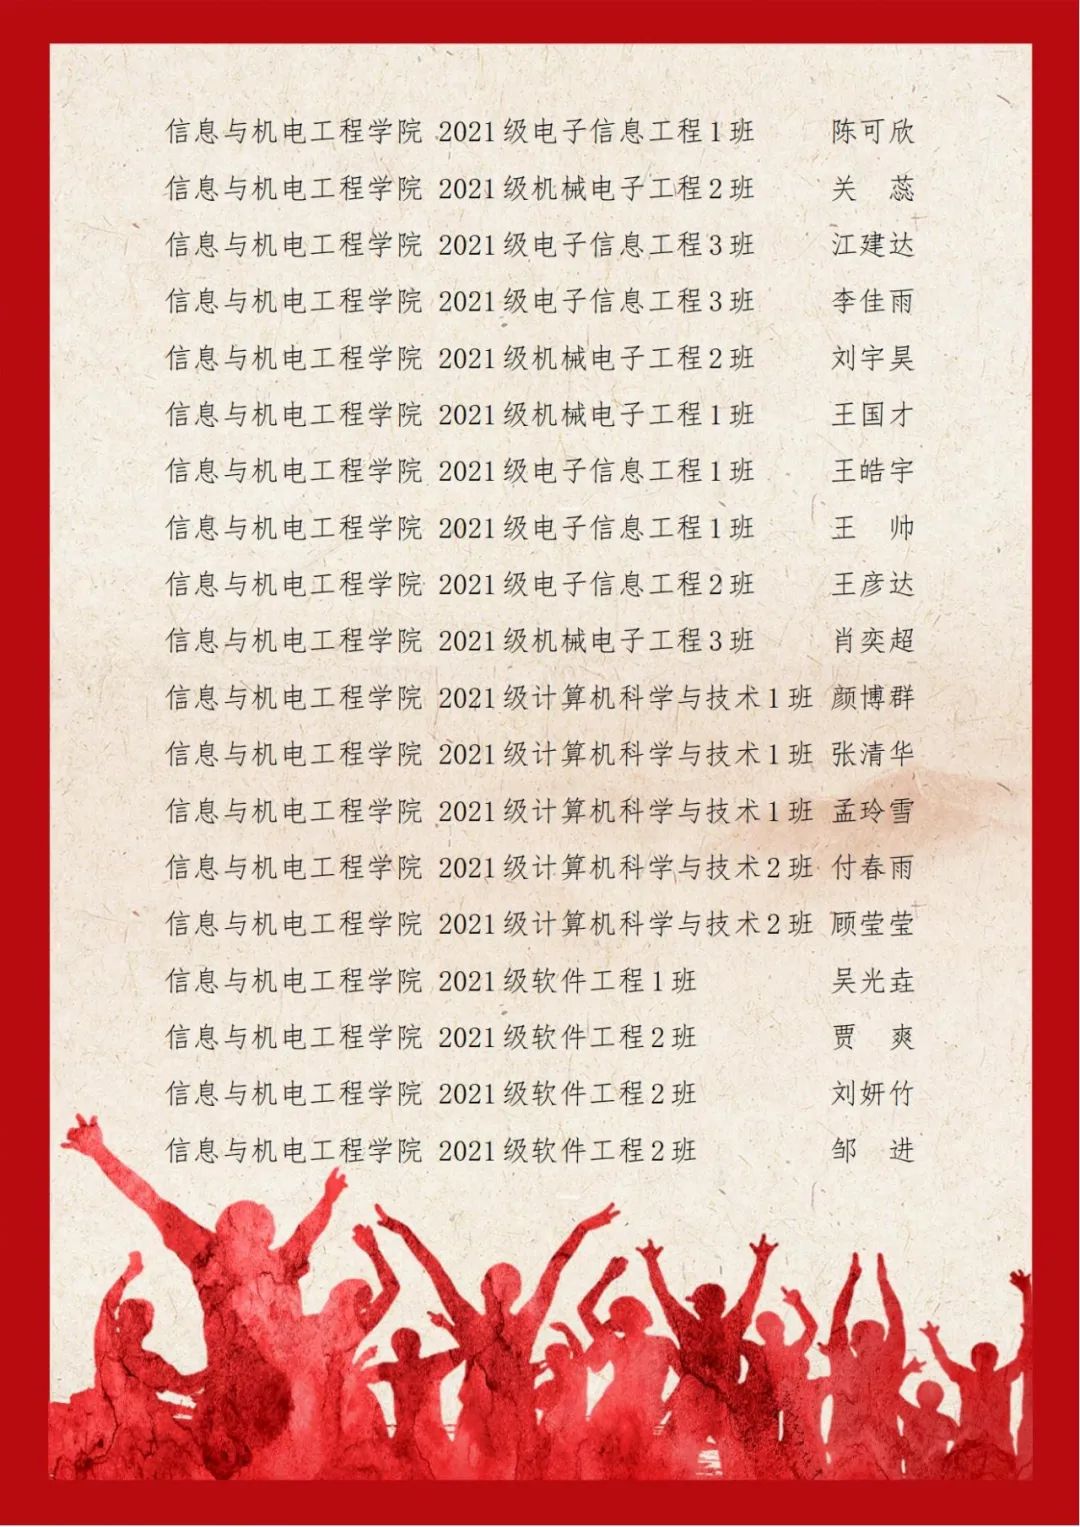 信息与机电工程学院 2021级电子信息工程1班 陈可欣
信息与机电工程学院 2021级机械电子工程2班 关 蕊
信息与机电工程学院 2021级电子信息工程3班 江建达
信息与机电工程学院 2021级电子信息工程3班 李佳雨
信息与机电工程学院 2021级机械电子工程2班 刘宇昊
信息与机电工程学院 2021级机械电子工程1班 王国才
信息与机电工程学院 2021级电子信息工程1班 王皓宇
信息与机电工程学院 2021级电子信息工程1班 王 帅
信息与机电工程学院 2021级电子信息工程2班 王彦达
信息与机电工程学院 2021级机械电子工程3班 肖奕超
信息与机电工程学院 2021级计算机科学与技术1班 颜博群
信息与机电工程学院 2021级计算机科学与技术1班 张清华
信息与机电工程学院 2021级计算机科学与技术1班 孟玲雪
信息与机电工程学院 2021级计算机科学与技术2班 付春雨
信息与机电工程学院 2021级计算机科学与技术2班 顾莹莹
信息与机电工程学院 2021级软件工程1班 吴光垚
信息与机电工程学院 2021级软件工程2班 贾 爽
信息与机电工程学院 2021级软件工程2班 刘妍竹
信息与机电工程学院 2021级软件工程2班 邹 进